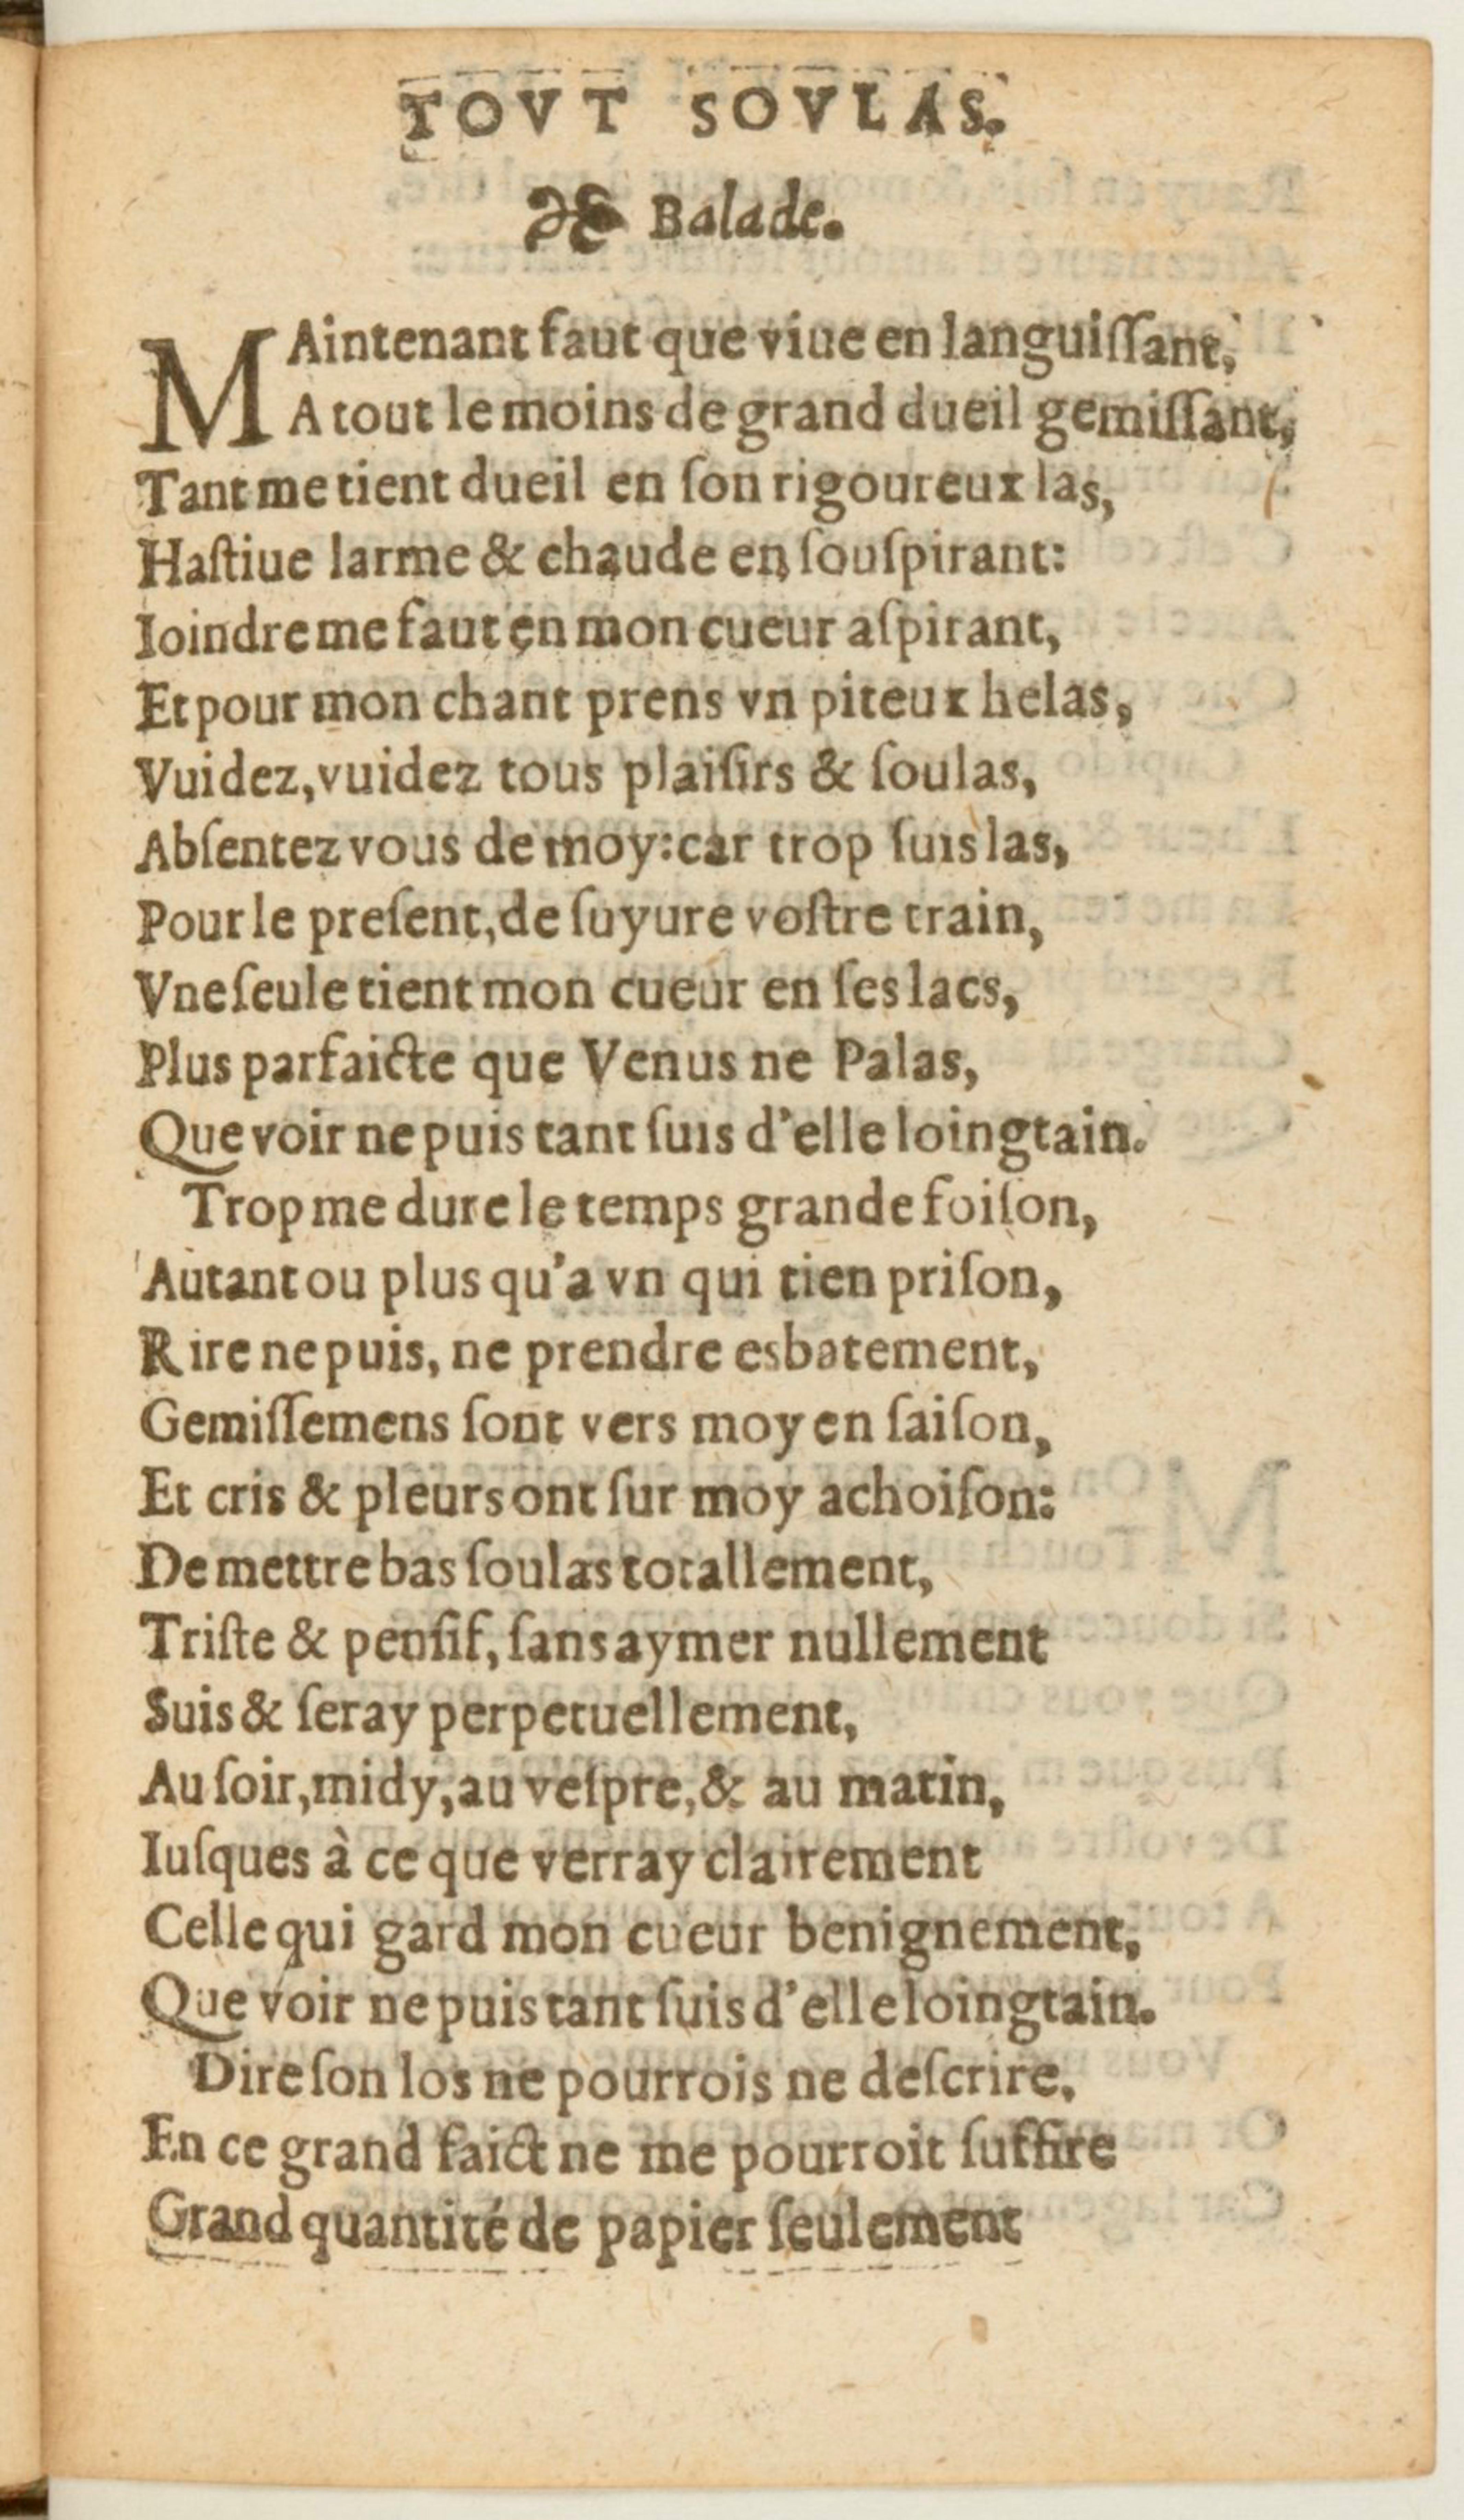 TOVT SOVLAS.
Balade.
MAintenant faut que viue en languiſſant,
A tout le moins de grand dueil gemiſſant,
Tant me tient dueil en ſon rigoureux las,
Haſtiue larme & chaude en ſouſpirant:
Ioindre me faut en mon cueur aſpirant,
Et pour mon chant prens vn piteux helas,
Vuidez, vuidez tous plaiſirs & ſoulas,
Abſentez vous de moy: car trop ſuis las,
Pour le preſent, de ſuyure voſtre train,
Vne ſeule tient mon cueur en ſes lacs,
Plus parfaicte que Venus ne Palas,
Que voir ne puis tant ſuis d'elle loingtain.
Trop me dure le temps grande foiſon,
Autant ou plus qu'a vn qui tien priſon,
Rire ne puis, ne prendre esbatement,
Gemiſſemens ſont vers moy en ſaiſon,
Et cris & pleurs ont ſur moy achoiſon:
De mettre bas ſoulas totallement,
Triſte & penſif, ſans aymer nullement
Suis & ſeray perpetuellement,
Au ſoir, midy, au veſpre, & au matin,
Iuſques à ce que verray clairement
Celle qui gard mon cueur benignement,
Que voir ne puis tant ſuis d'elle loingtain.
Dire ſon los ne pourrois ne deſcrire,
En ce grand faict ne me pourroit ſuffire
Grand quantité de papier ſeulement